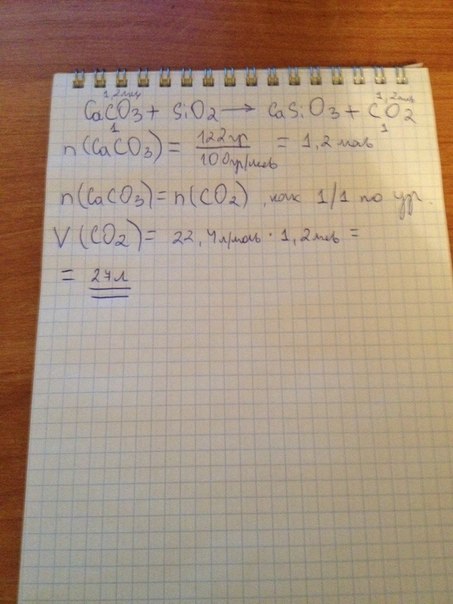 1,2моль 1,2моль
CaCO3 + SiO2 → CaSiO3 + CO2
1 1
n(CaCO3) = 122гр / 100гр/моль = 1,2 моль
n(CaCO3) = n(CO2), как 1/1 по ур.
V(CO2) = 22,4л/моль · 1,2моль =
= 27л